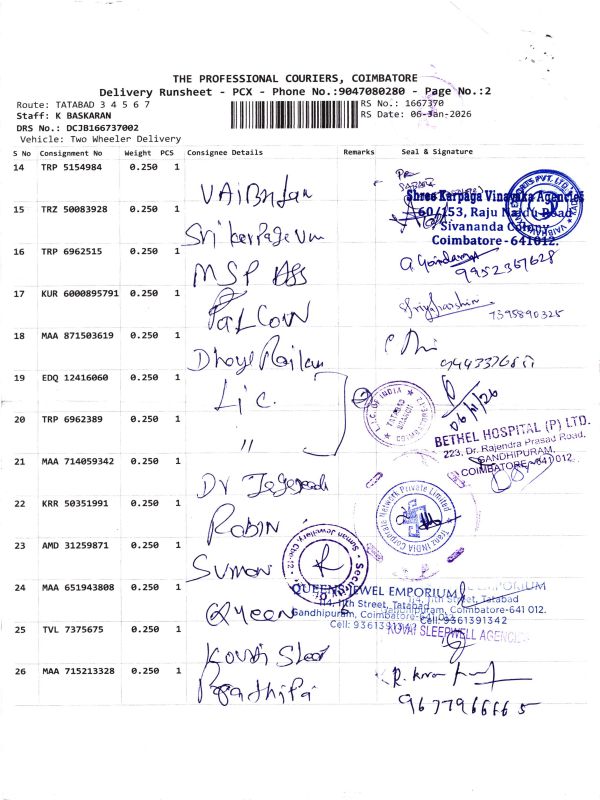 THE PROFESSIONAL COURIERS, COIMBATORE
Delivery Runsheet - PCX - Phone No.:9047080280 - Page No.:2
Route: TATABAD 3 4 5 6 7
RS No.: 1667370
Staff: K BASKARAN
RS Date: 06-Jan-2026
DRS No.: DCJB166737002
Vehicle: Two Wheeler Delivery
S No Consignment No Weight PCS Consignee Details Remarks Seal & Signature
14 TRP 5154984 0.250 1
Shree Karpaga Vinayaka Agencies
15 TRZ 50083928 0.250 1
60/153, Raju Naidu Road
Sivananda Colony
Coimbatore-641012.
16 TRP 6962515 0.250 1 MSP
9952367628
17 KUR 6000895791 0.250 1 FALCON
7395890325
18 MAA 871503619 0.250 1
19 EDQ 12416060 0.250 1 Lic.
L.I.C. OF INDIA
TATABAD
BRANCH
06/1/26
20 TRP 6962389 0.250 1 "
BETHEL HOSPITAL (P) LTD.
223, Dr. Rajendra Prasad Road,
GANDHIPURAM,
COIMBATORE-641 012.
21 MAA 714059342 0.250 1 Dr
22 KRR 50351991 0.250 1 ROBIN
Tranz INDIA Corporate Network Private Limited
23 AMD 31259871 0.250 1 SUMON
Suman Jewellery Cbe-12 Security
24 MAA 651943808 0.250 1 QUEEN
QUEENS JEWEL EMPORIUM
114, 11th Street, Tatabad
Gandhipuram, Coimbatore-641 012.
Cell: 9361391342
25 TVL 7375675 0.250 1 Kovai Sleep
KOVAI SLEEPWELL AGENCIES
26 MAA 715213328 0.250 1
9677966665